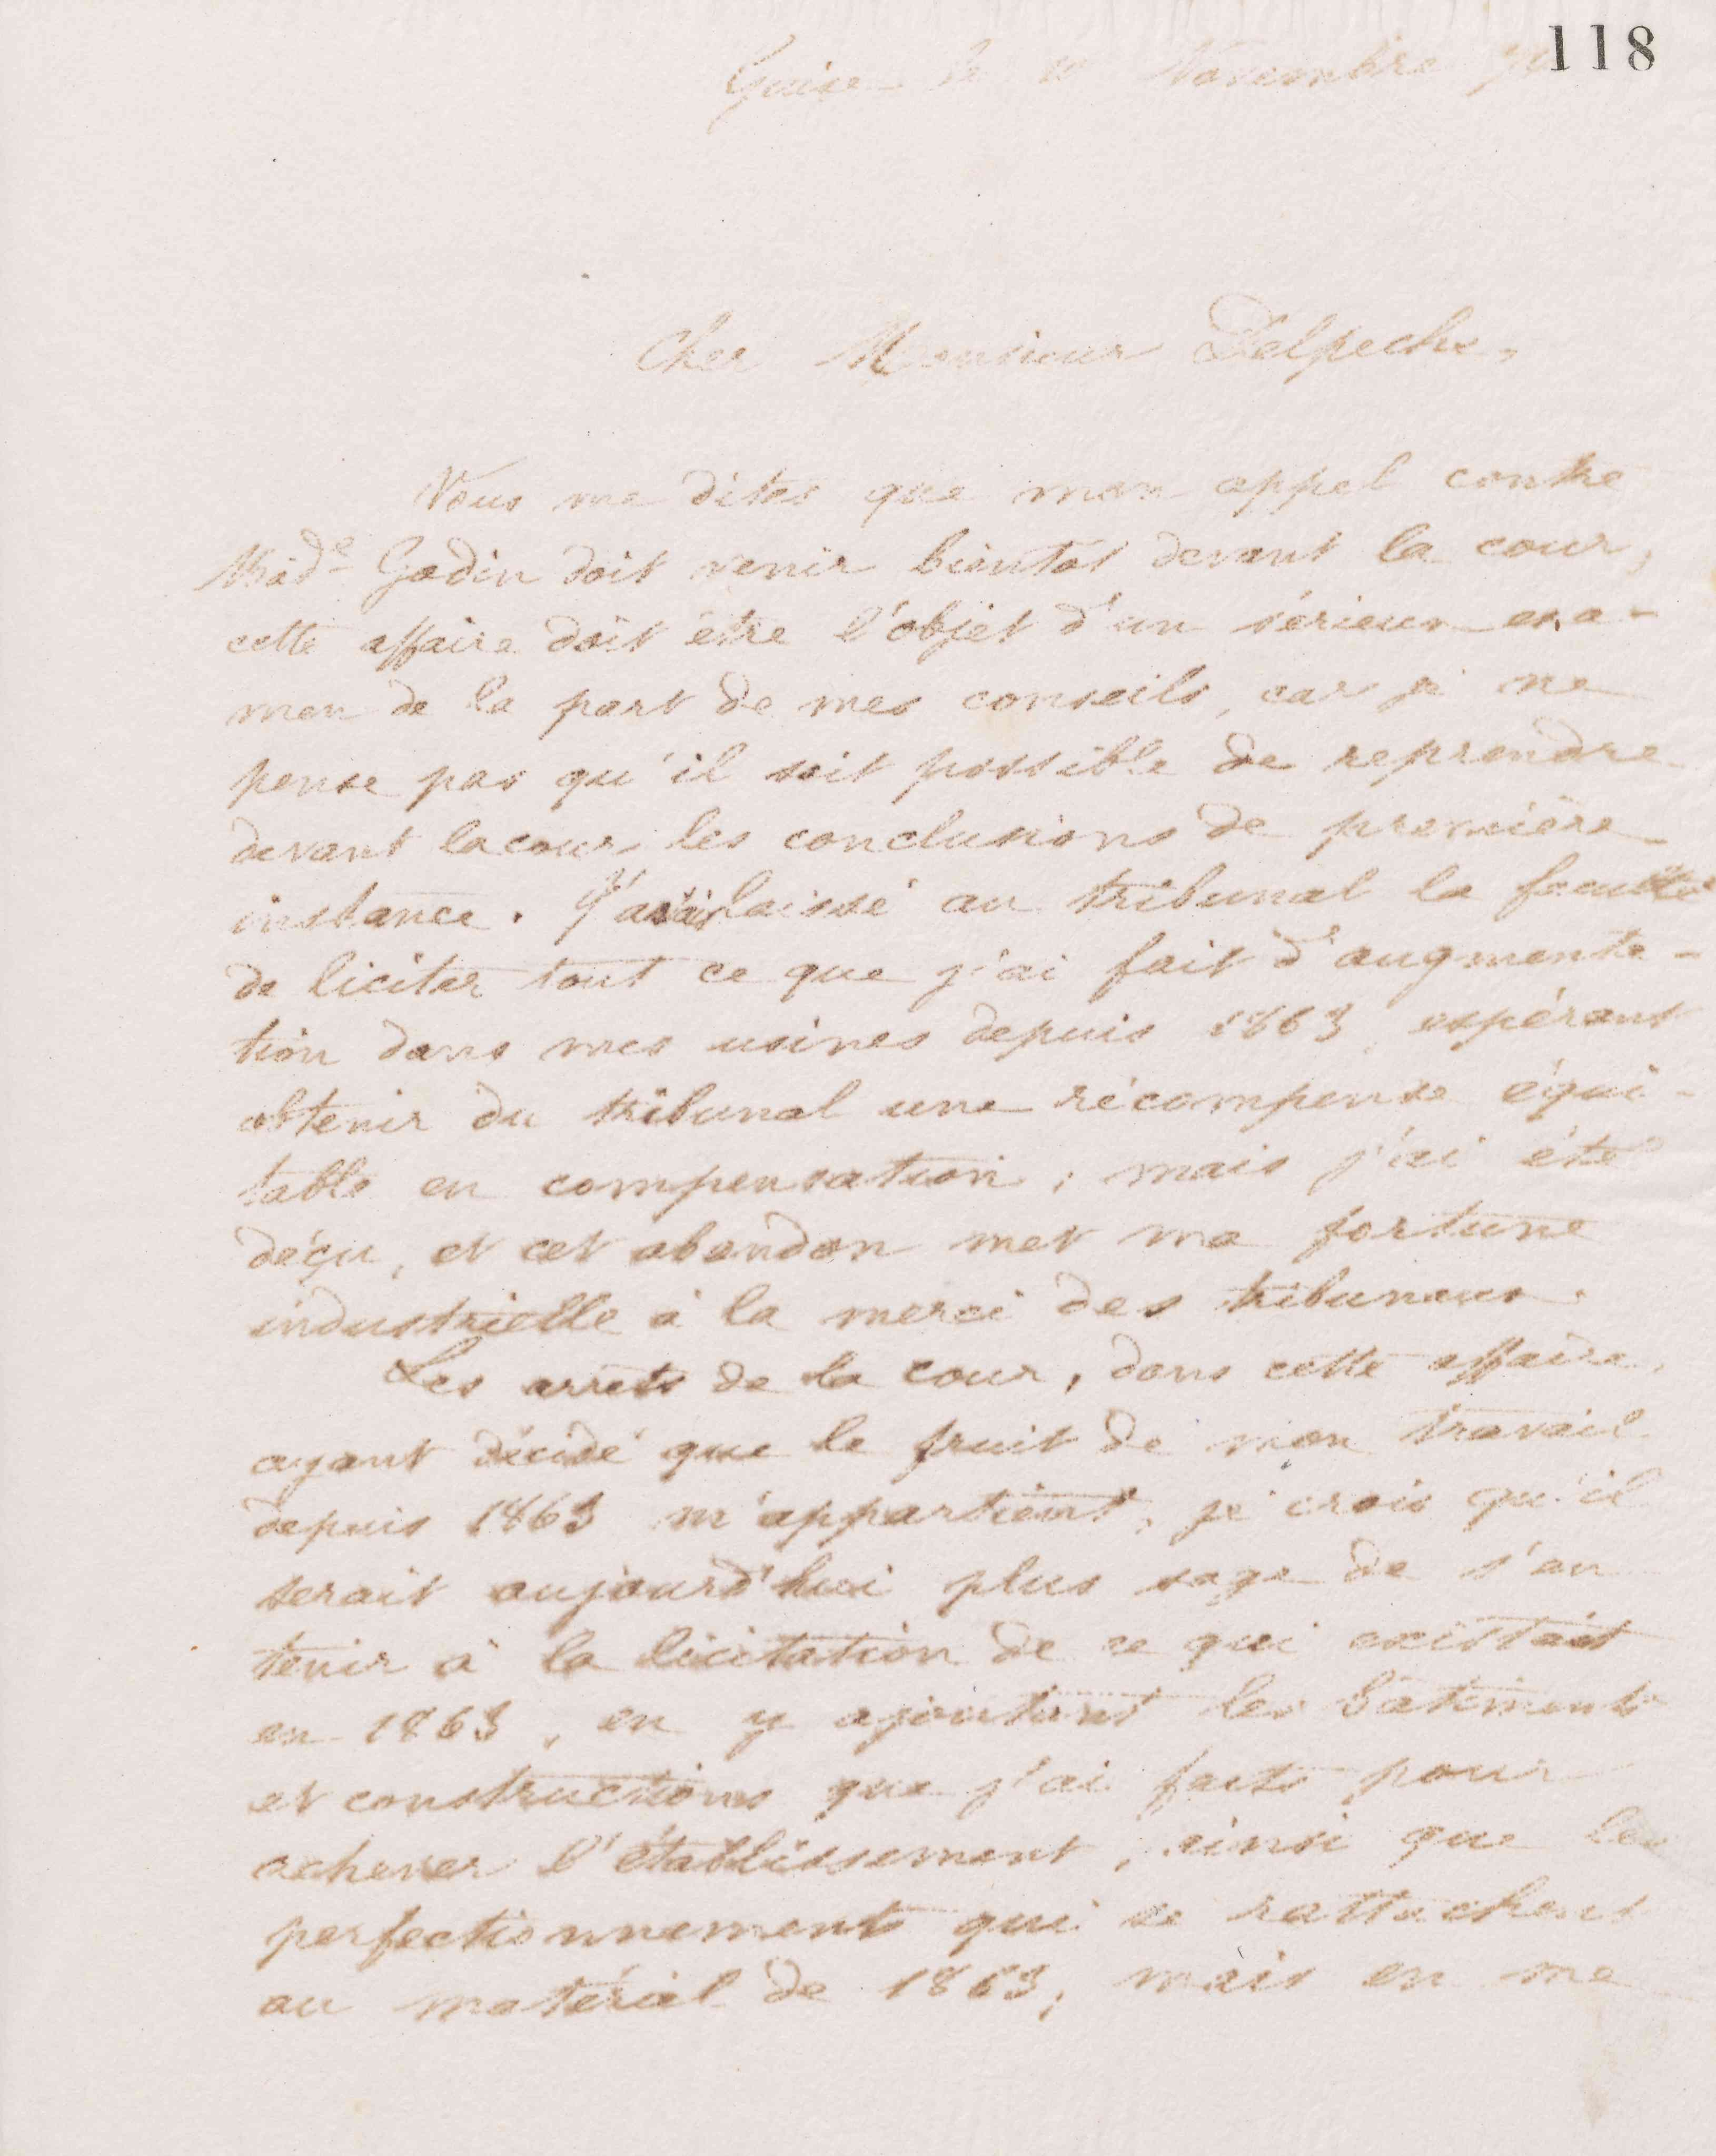 118
Guise le Novembre
Cher Monsieur Delpeche,
Vous me dites que mon appel contre
Mad.e Godin doit venir bientôt devant la cour,
cette affaire doit être l'objet d'un sérieux exa-
men de la part de mes conseils, car je ne
pense pas qu'il soit possible de reprendre
devant la cour les conclusions de première
instance. J'avais laissé au tribunal la faculté
de liciter tout ce que j'ai fait d'augmenta-
tion dans mes usines depuis 1863, espérant
obtenir du tribunal une récompense équi-
table en compensation ; mais j'ai été
déçu, et cet abandon met ma fortune
industrielle à la merci des tribunaux.
Les arrêts de la cour, dans cette affaire,
ayant décidé que le fruit de mon travail
depuis 1863 m'appartient, je crois qu'il
serait aujourd'hui plus sage de s'en
tenir à la licitation de ce qui existait
en 1863, en y ajoutant les bâtiments
et constructions que j'ai faits pour
achever l'établissement, ainsi que les
perfectionnements qui se rattachent
au matériel de 1863, mais en me